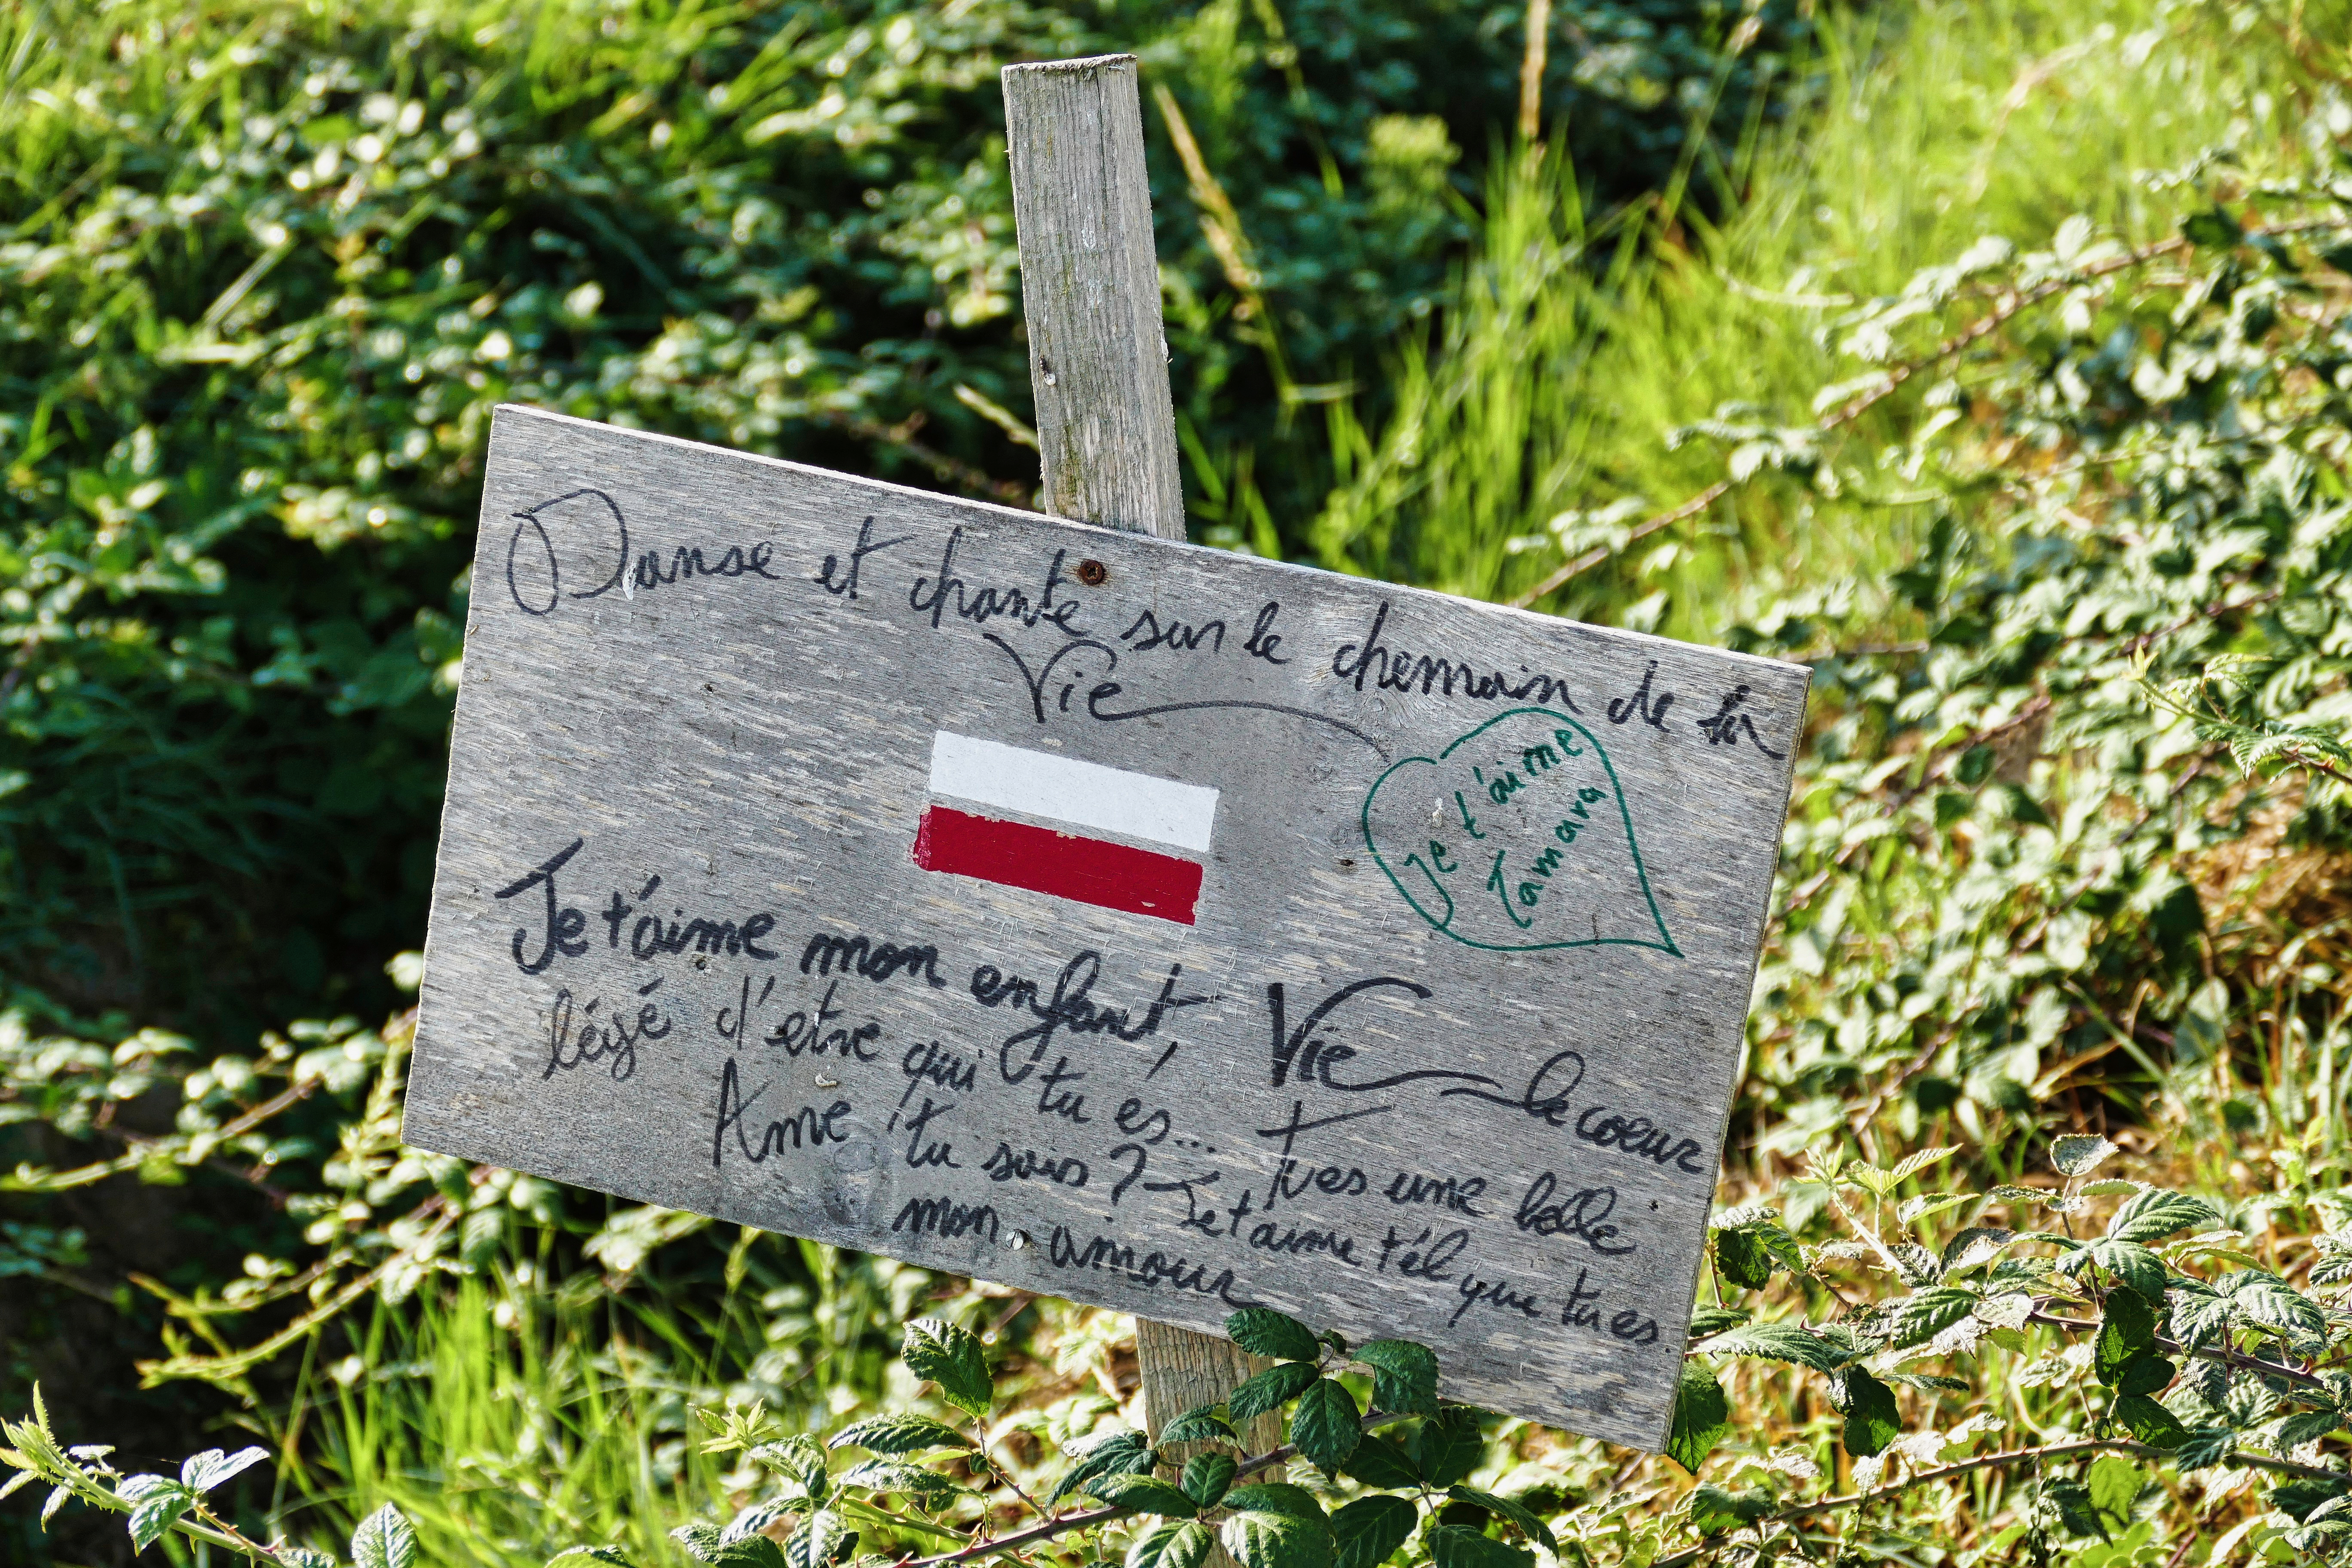 Danse et chante sur le chemain de la
Vie
Je t'aime
Tamara
Je t'aime mon enfant, Vie le coeur
légé d'etre qui tu és... Tu es une belle
Ame tu sais? Je t'aime tél que tu es
mon amour